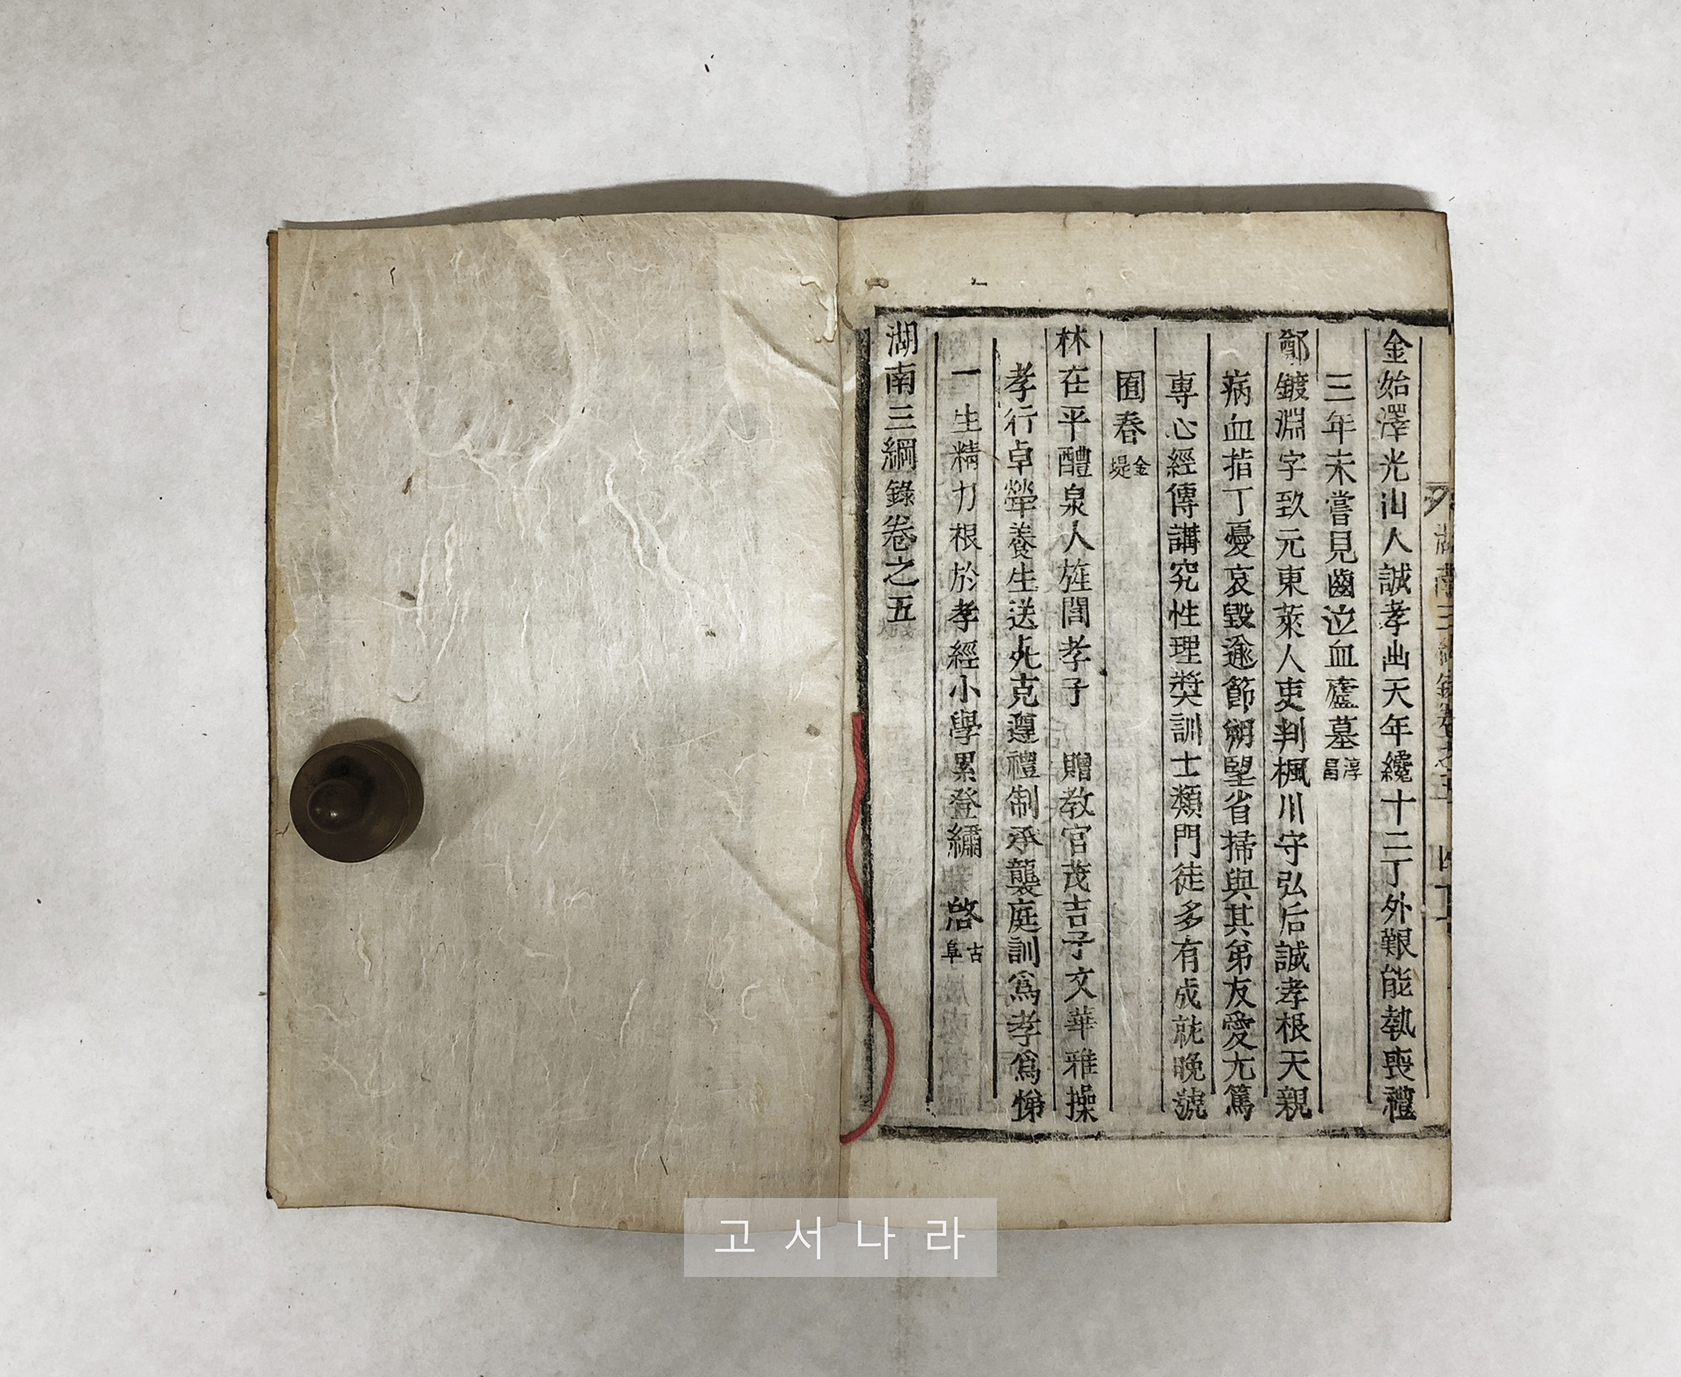 金始澤光山人誠孝出天年纔十二丁外艱能執喪禮
三年未嘗見齒泣血廬墓淳昌
鄭鍍淵字致元東萊人吏判楓川守弘后誠孝根天親
病血指丁憂哀毀逾節朔望省掃與其弟友愛尤篤
專心經傳講究性理奬訓士類門徒多有成就晩號
囿春金堤
林在平醴泉人旌閭孝子 贈敎官茂吉子文華雅操
孝行卓犖養生送死克遵禮制承襲庭訓爲孝爲悌
一生精力根於孝經小學累登繡啓古阜
湖南三綱錄卷之五
고서나라